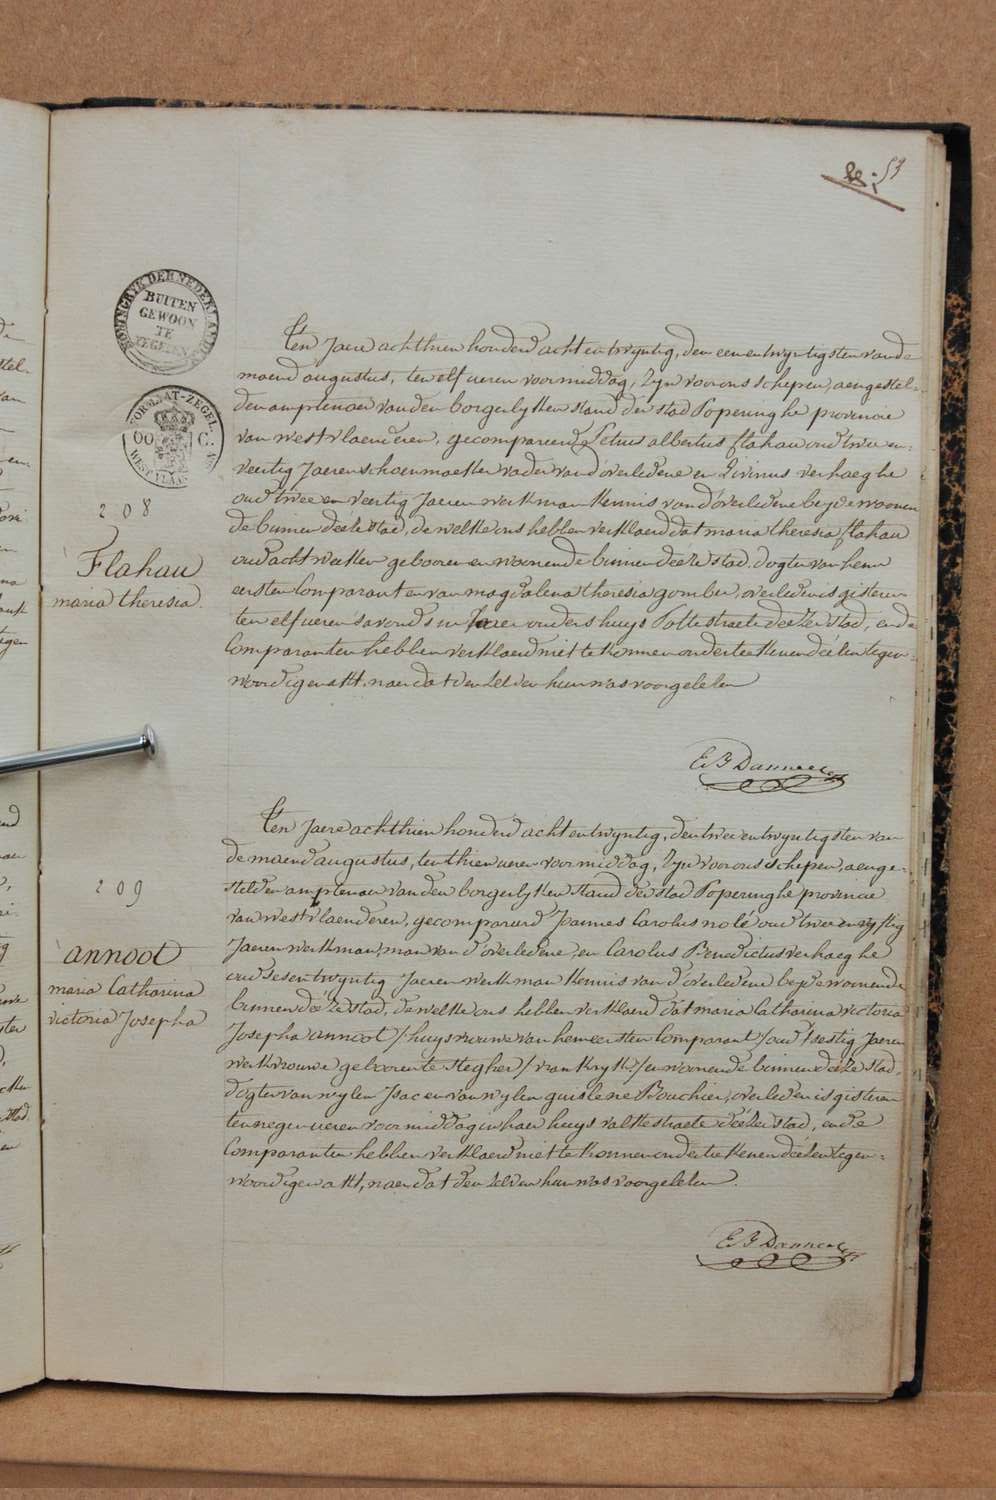 53
KONINGRYK DER NEDERLANDEN
BUITEN
GEWOON
TE
ZEGELEN
FORMAAT-ZEGEL
00 C.
WEST VLAAN
Ten Jaere achthien honderd acht en twyntig, den een en twyntigsten van de
maend augustus, ten elf ueren voormiddag, zyn voor ons schepen, aengestel-
den amptenaer van den borgerlyken stand der stad Poperinghe provincie
van westvlaenderen, gecompareerd Petrus albertus flahau oud twee en
veertig Jaeren schoenmaeker vader van d'overledene en Livinus verhaeghe
oud twee en veertig Jaeren werkman kennis van d'overledene beyde woonen
208
de binnen deéze stad, de welke ons hebben verklaerd dat maria theresia flahau
Flahau
oud acht weéken gebooren en woonende binnen deéze stad, dogter van henn
maria theresia.
eersten Comparant en van magdalena theresia gombir, overleden is gisteren
ten elf ueren s'avonds in haer ouders huys Pottestraete deézer stad, en de
Comparanten hebben verklaerd niet te konnen onderteékenen deézen tegen-
woordigen akt, naer dat den zelven hun was voorgelezen
Ten Jaere achthien honderd acht en twyntig, den twee en twyntigsten van
de maend augustus, ten thien ueren voormiddag, zyn voor ons schepen, aenge-
209
stelden amptenaer van den borgerlyken stand der stad Poperinghe provincie
van westvlaenderen, gecompareerd Joannes Carolus nolé oud twee en vyftig
annoot
Jaeren werkman, man van d'overledene, en Carolus Benedictus verhaeghe
maria Catharina
oud sesentwyntig Jaeren werkman kennis van d'overledene beyde woonende
victoria Josepha
binnen deéze stad, de welke ons hebben verklaerd dat maria Catharina victoria
Josepha annoot / huysvrouwe van hem eersten Comparant / oud sestig Jaeren
werkvrouwe gebooren te steghers / vrankryk / en woonende binnen deéze stad,
dogter van wylen Isac en van wylen guislene Bouchier, overleden is gisteren
ten negen ueren voormiddag in haer huys valkestraete deézer stad, en de
Comparanten hebben verklaerd niet te konnen onderteékenen deézen tegen-
woordigen akt, naer dat den zelven hun was voorgelezen.